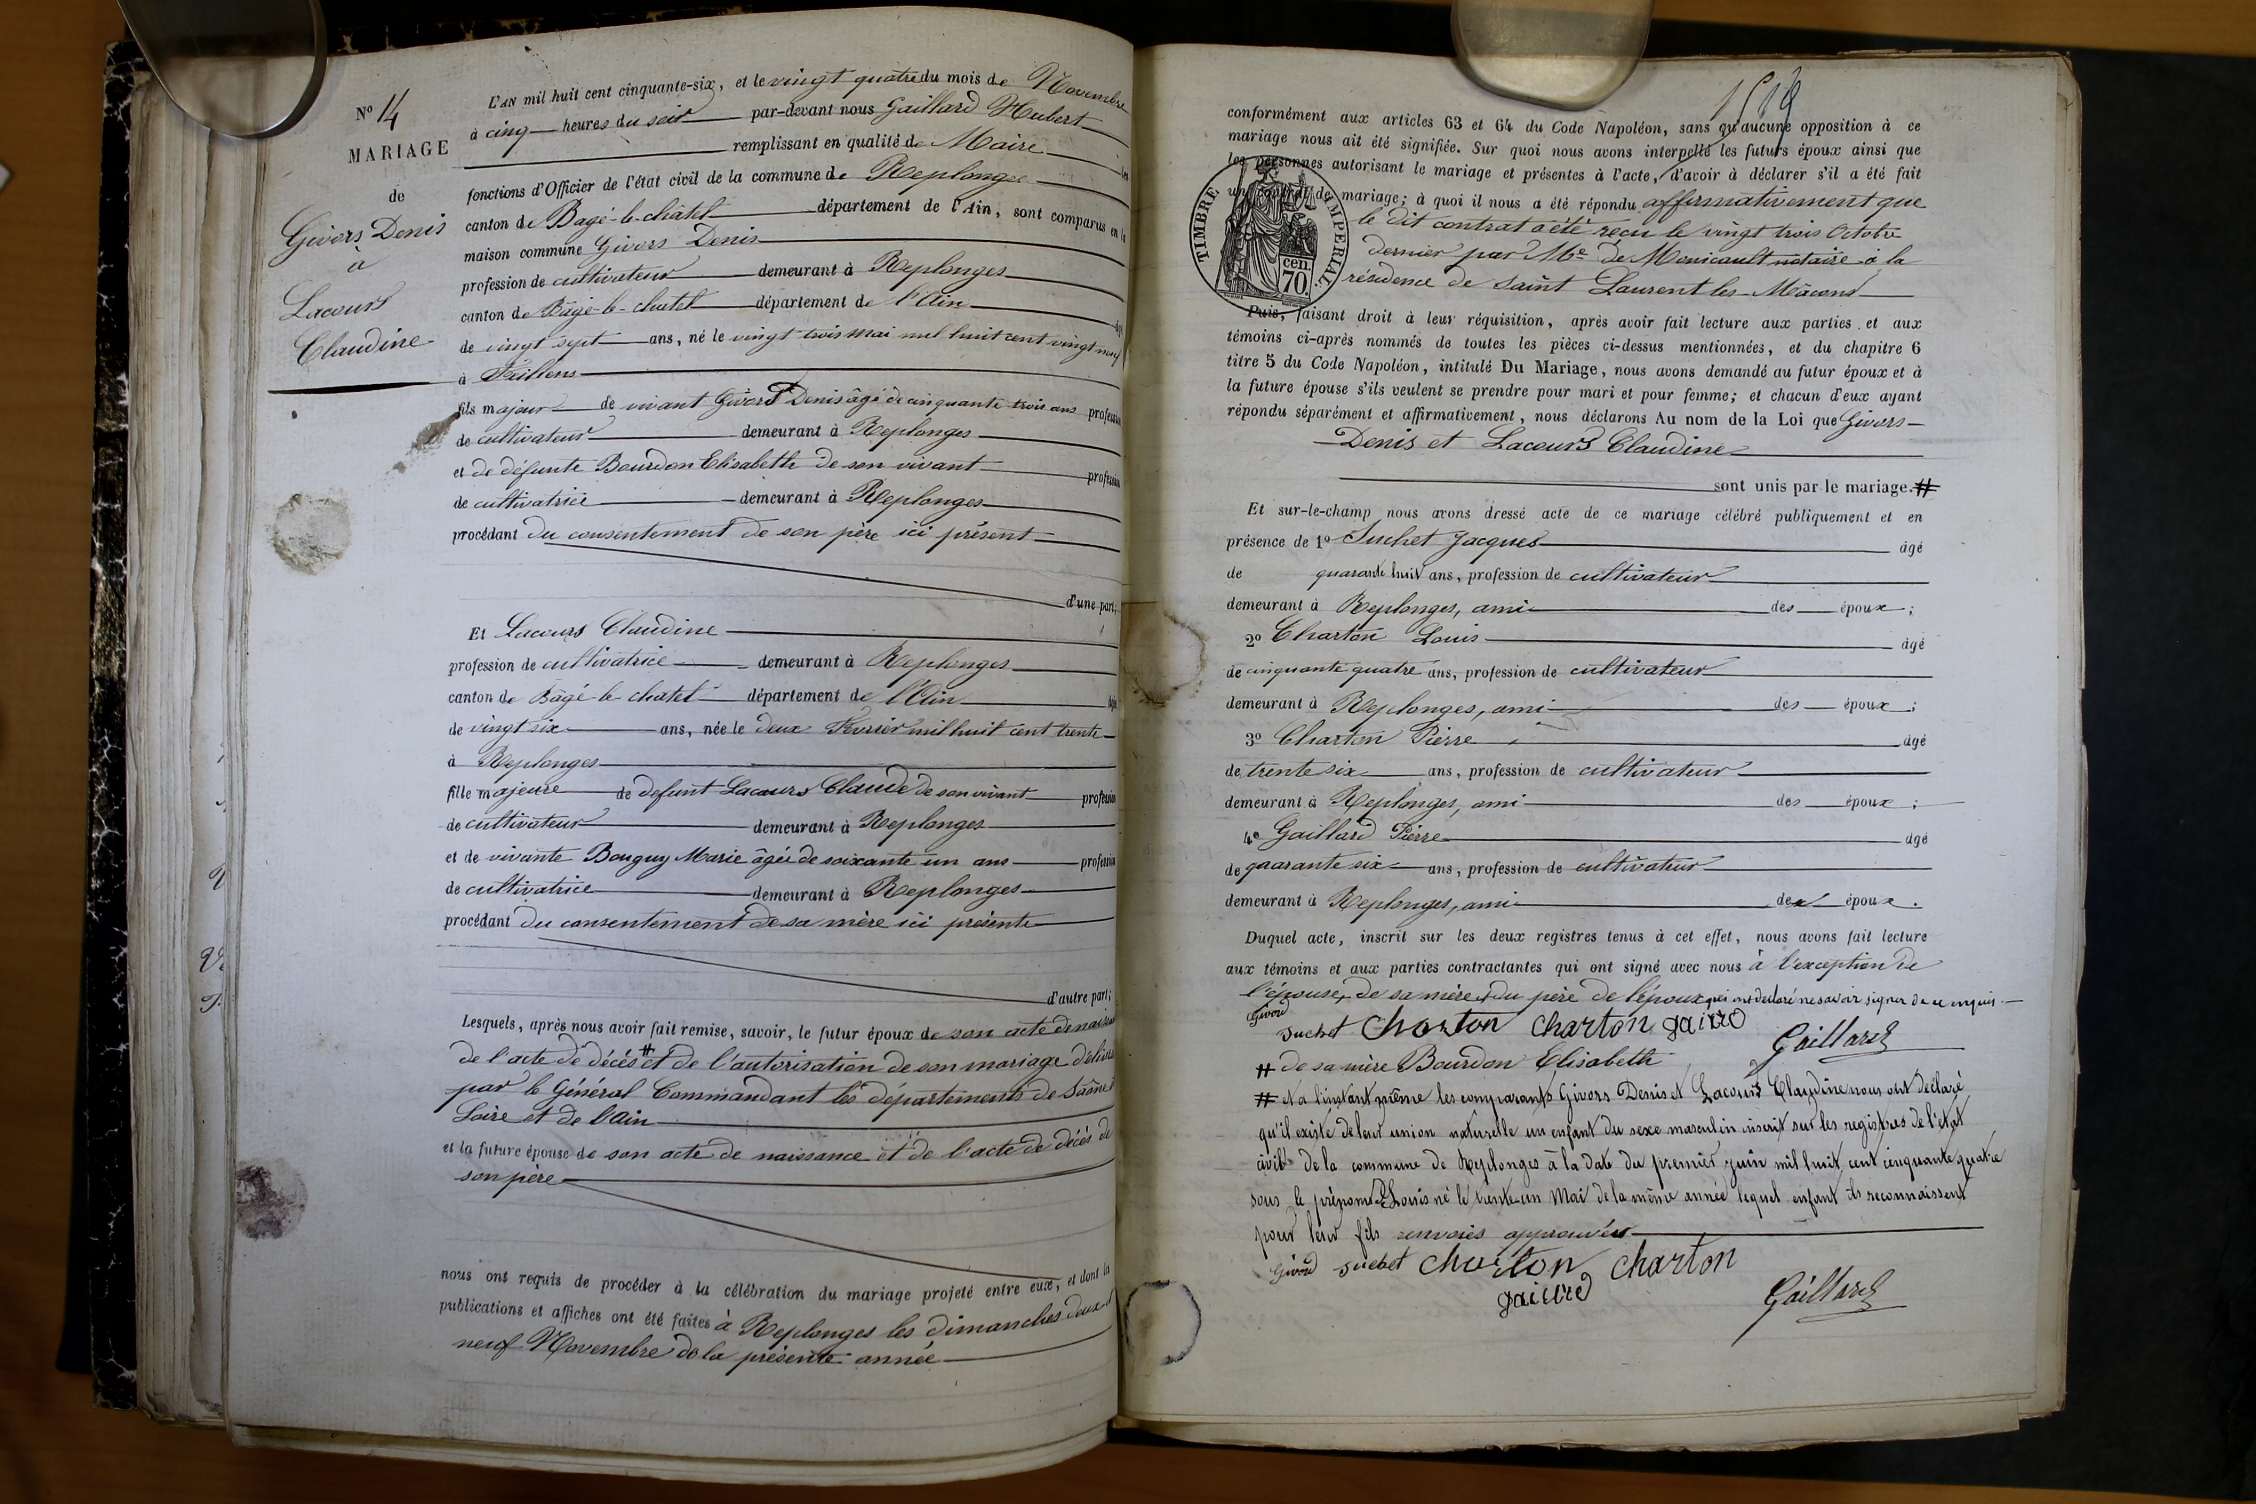 N° 14
MARIAGE
de
Givors Denis
à
Lacours
Claudine
L'AN mil huit cent cinquante-six, et le vingt quatre du mois de Novembre
à cinq heures du soir par-devant nous Gaillard Hubert
remplissant en qualité de Maire les
fonctions d'Officier de l'état civil de la commune de Replonges
canton de Bagé-le-châtel département de l'Ain, sont comparus en la
maison commune Givors Denis
profession de cultivateur demeurant à Replonges
canton de Bâgé-le-chatel département de l'Ain âgé
de vingt sept ans, né le vingt trois mai mil huit cent vingt neuf
à Feillens
fils majeur de vivant Givors Denis âgé de cinquante trois ans profession
de cultivateur demeurant à Replonges
et de défunte Bourdon Elisabeth de son vivant profession
de cultivatrice demeurant à Replonges
procédant du consentement de son père ici présent
d'une part;
Et Lacours Claudine
profession de cultivatrice demeurant à Replonges
canton de Bâgé-le-chatel département de l'Ain âgée
de vingt six ans, née le deux Fevrier mil huit cent trente
à Replonges
fille majeure de defunt Lacours Claude de son vivant profession
de cultivateur demeurant à Replonges
et de vivante Bouguy Marie âgée de soixante un ans profession
de cultivatrice demeurant à Replonges
procédant du consentement de sa mère ici présente
d'autre part;
Lesquels, après nous avoir fait remise, savoir, le futur époux de son acte de naissance
de l'acte de décès # et de l'autorisation de son mariage délivré
par le Général Commandant les départements de Saône &
Loire et de l'Ain
et la future épouse de son acte de naissance et de l'acte de décès de
son père
nous ont requis de procéder à la célébration du mariage projeté entre eux, et dont les
publications et affiches ont été faites à Replonges les dimanches deux et
neuf Novembre de la présente année
conformément aux articles 63 et 64 du Code Napoléon, sans qu'aucune opposition à ce
mariage nous ait été signifiée. Sur quoi nous avons interpellé les futurs époux ainsi que
les personnes autorisant le mariage et présentes à l'acte, d'avoir à déclarer s'il a été fait
un contrat de mariage; à quoi il nous a été répondu affirmativement que
le dit contrat a été reçu le vingt trois Octobre
dernier par Me de Monicault notaire à la
résidence de Saint Laurent les-Mâcond
TIMBRE IMPERIAL.
70 cen.
Puis, faisant droit à leur réquisition, après avoir fait lecture aux parties et aux
témoins ci-après nommés de toutes les pièces ci-dessus mentionnées, et du chapitre 6
titre 5 du Code Napoléon, intitulé Du Mariage, nous avons demandé au futur époux et à
la future épouse s'ils veulent se prendre pour mari et pour femme; et chacun d'eux ayant
répondu séparément et affirmativement, nous déclarons Au nom de la Loi que Givors
Denis et Lacours Claudine
sont unis par le mariage. #
Et sur-le-champ nous avons dressé acte de ce mariage célébré publiquement et en
présence de 1° Suchet Jacques âgé
de quarante huit ans, profession de cultivateur
demeurant à Replonges, ami des époux;
2° Charton Louis âgé
de cinquante quatre ans, profession de cultivateur
demeurant à Replonges, ami des époux;
3° Charton Pierre âgé
de trente six ans, profession de cultivateur
demeurant à Replonges, ami des époux;
4° Gaillard Pierre âgé
de quarante six ans, profession de cultivateur
demeurant à Replonges, ami des époux.
Duquel acte, inscrit sur les deux registres tenus à cet effet, nous avons fait lecture
aux témoins et aux parties contractantes qui ont signé avec nous à l'exception de
l'épouse, de sa mère & du père de l'époux qui ont déclaré ne savoir signer de ce enquis.
Givord
Suchet Charton Charton Gaillard
# de sa mère Bourdon Elisabeth
# et à l'instant même les comparants Givors Denis et Lacours Claudine nous ont déclaré
qu'il existe de leur union naturelle un enfant du sexe masculin inscrit sur les registres de l'état
civil de la commune de Replonges à la date du premier juin mil huit cent cinquante quatre
sous le prénom de Louis né le trente-un Mai de la même année lequel enfant ils reconnaissent
pour leur fils renvois approuvés
Givord Suchet Charton Charton
Gaillard